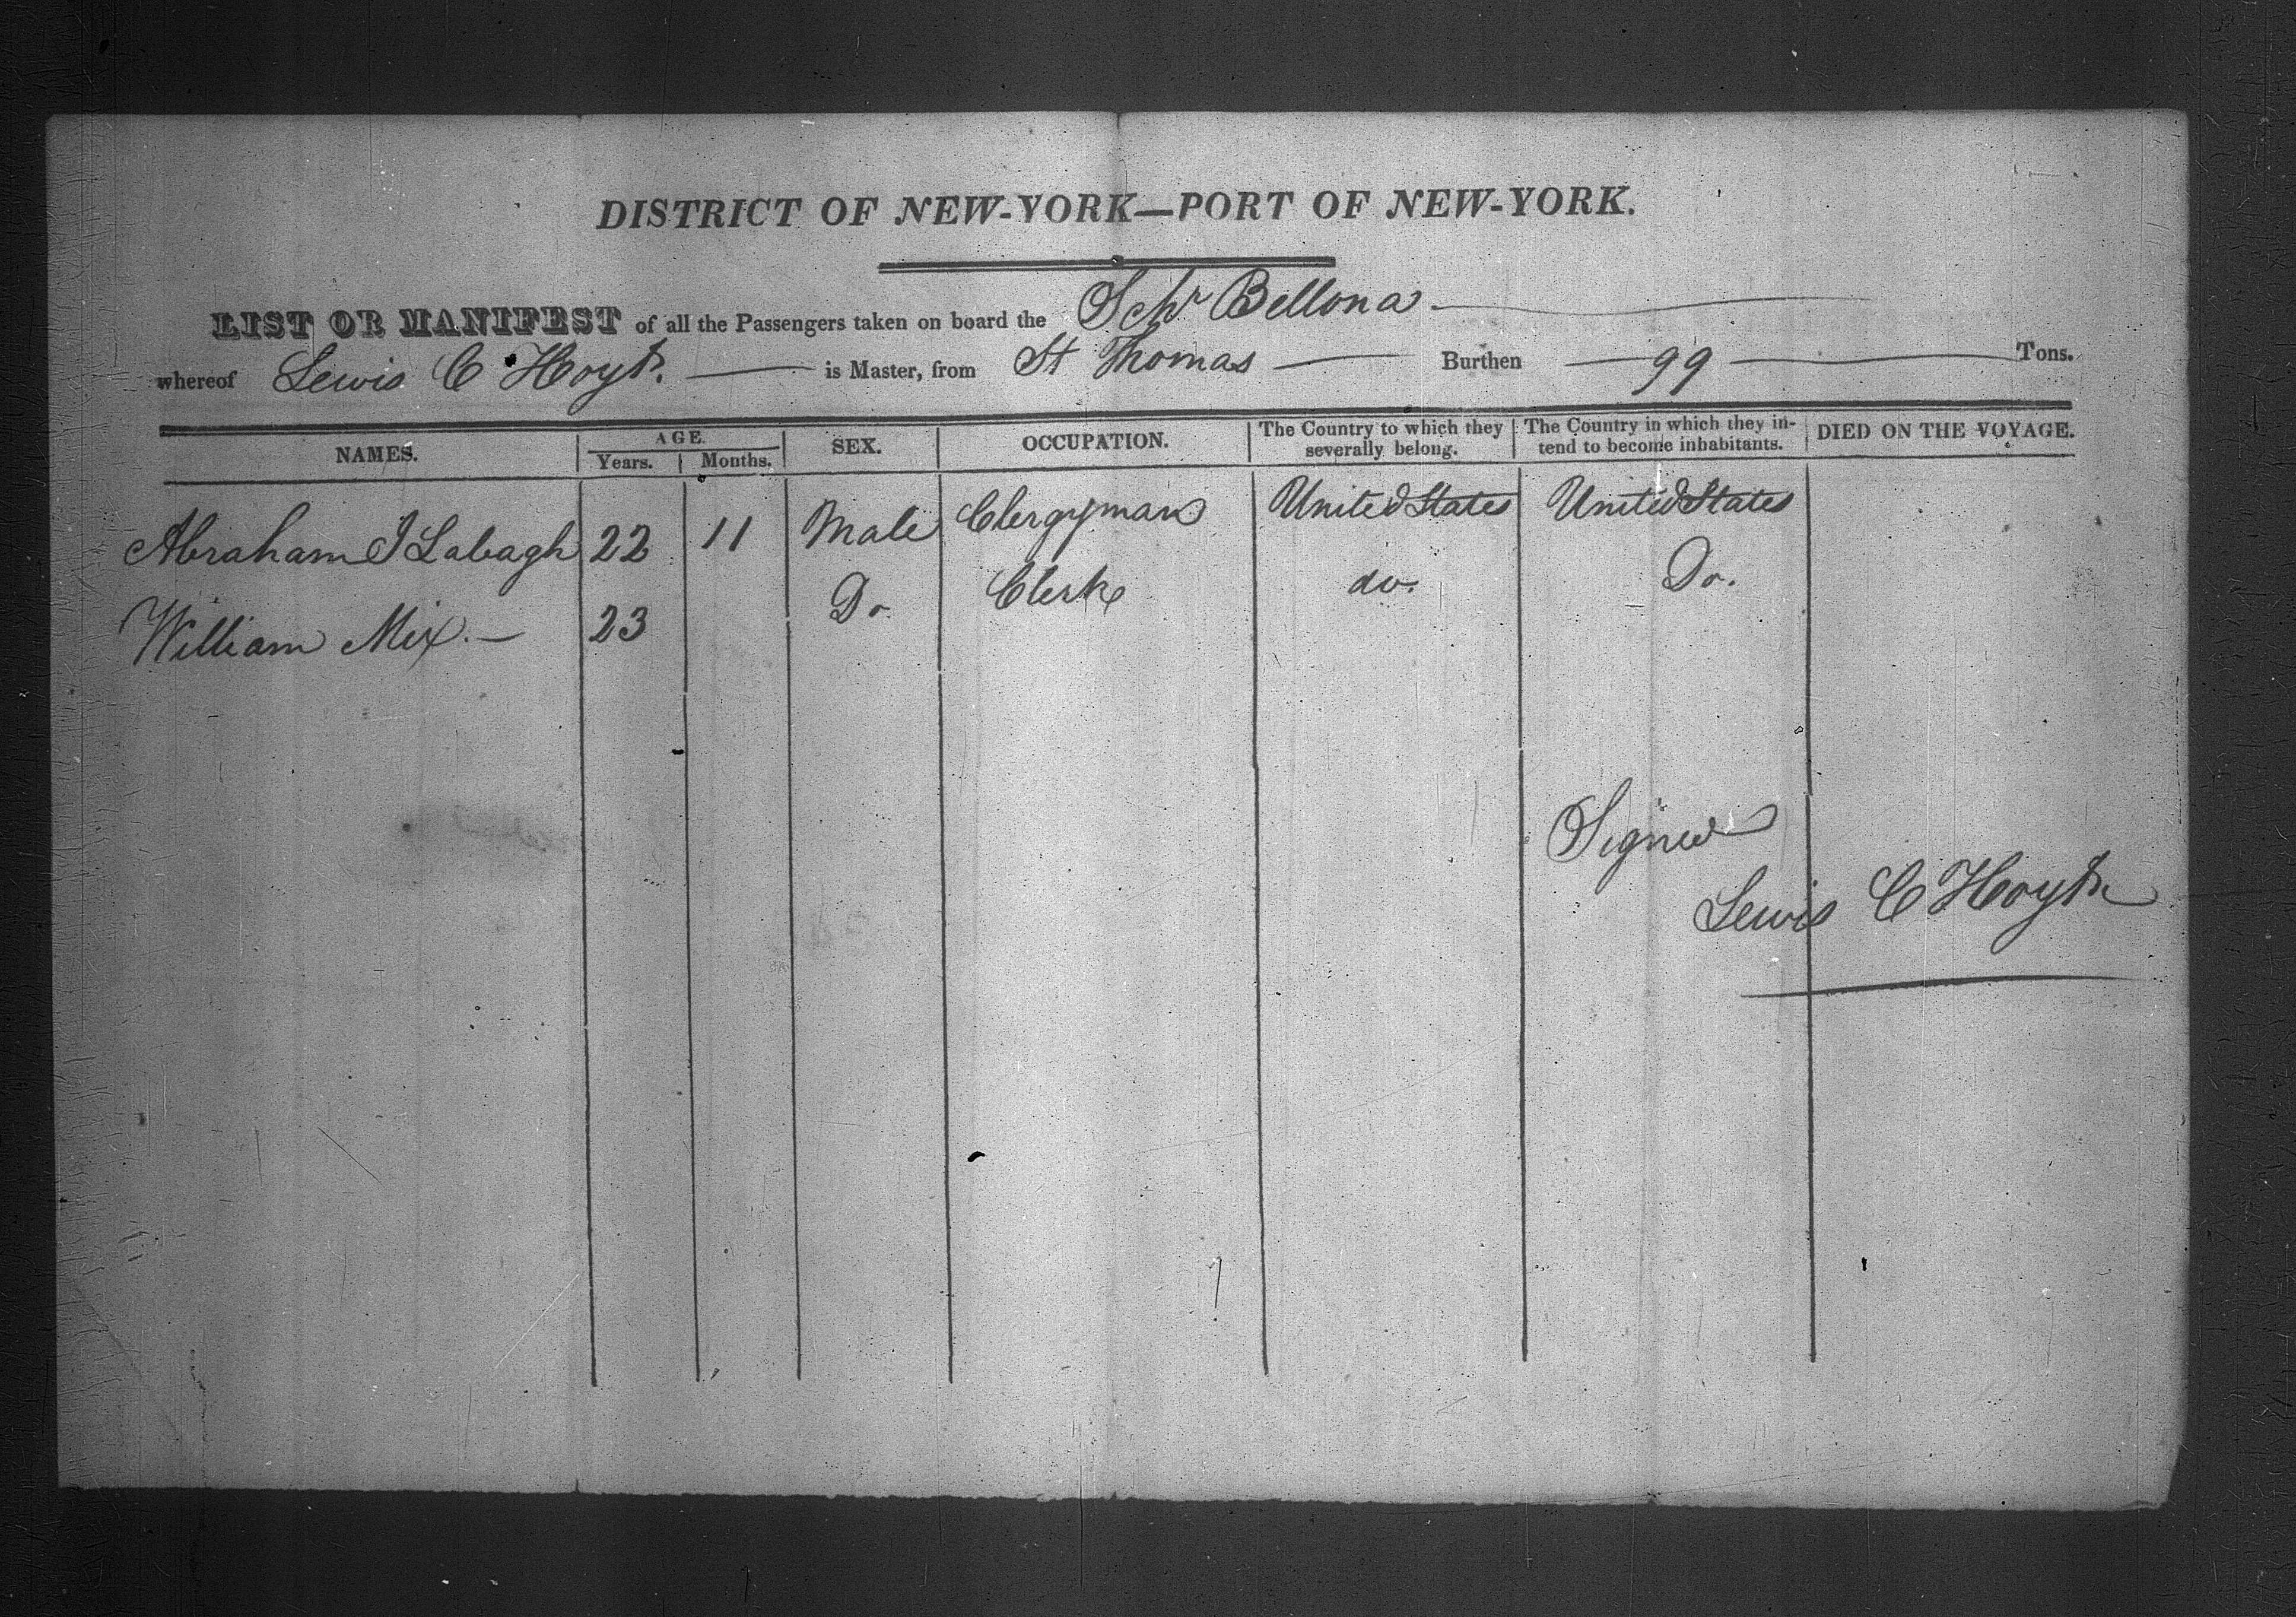 DISTRICT OF NEW-YORK—PORT OF NEW-YORK.
LIST OR MANIFEST of all the Passengers taken on board the Schr Bellona
whereof Lewis C Hoyt. is Master, from St Thomas Burthen 99 Tons.
NAMES. AGE. Years. Months. SEX. OCCUPATION. The Country to which they severally belong. The Country in which they intend to become inhabitants. DIED ON THE VOYAGE.
Abraham I Labagh 22 11 Male Clergyman United States United States
William Mix. 23 Do Clerk do. Do.
Signed
Lewis C Hoyt